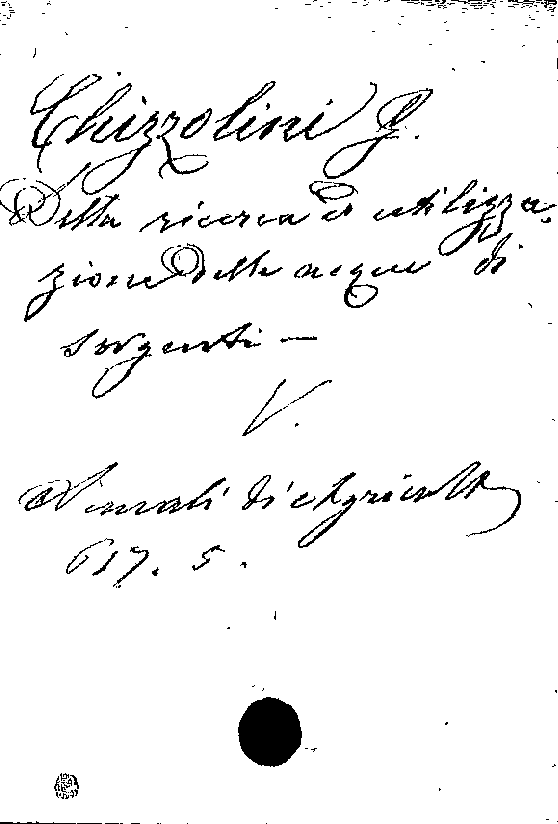 Chizzolini G.
Della ricerca ed utilizza-
zione delle acque di
sorgenti —
V.
Annali di Agricolt
617. 5.